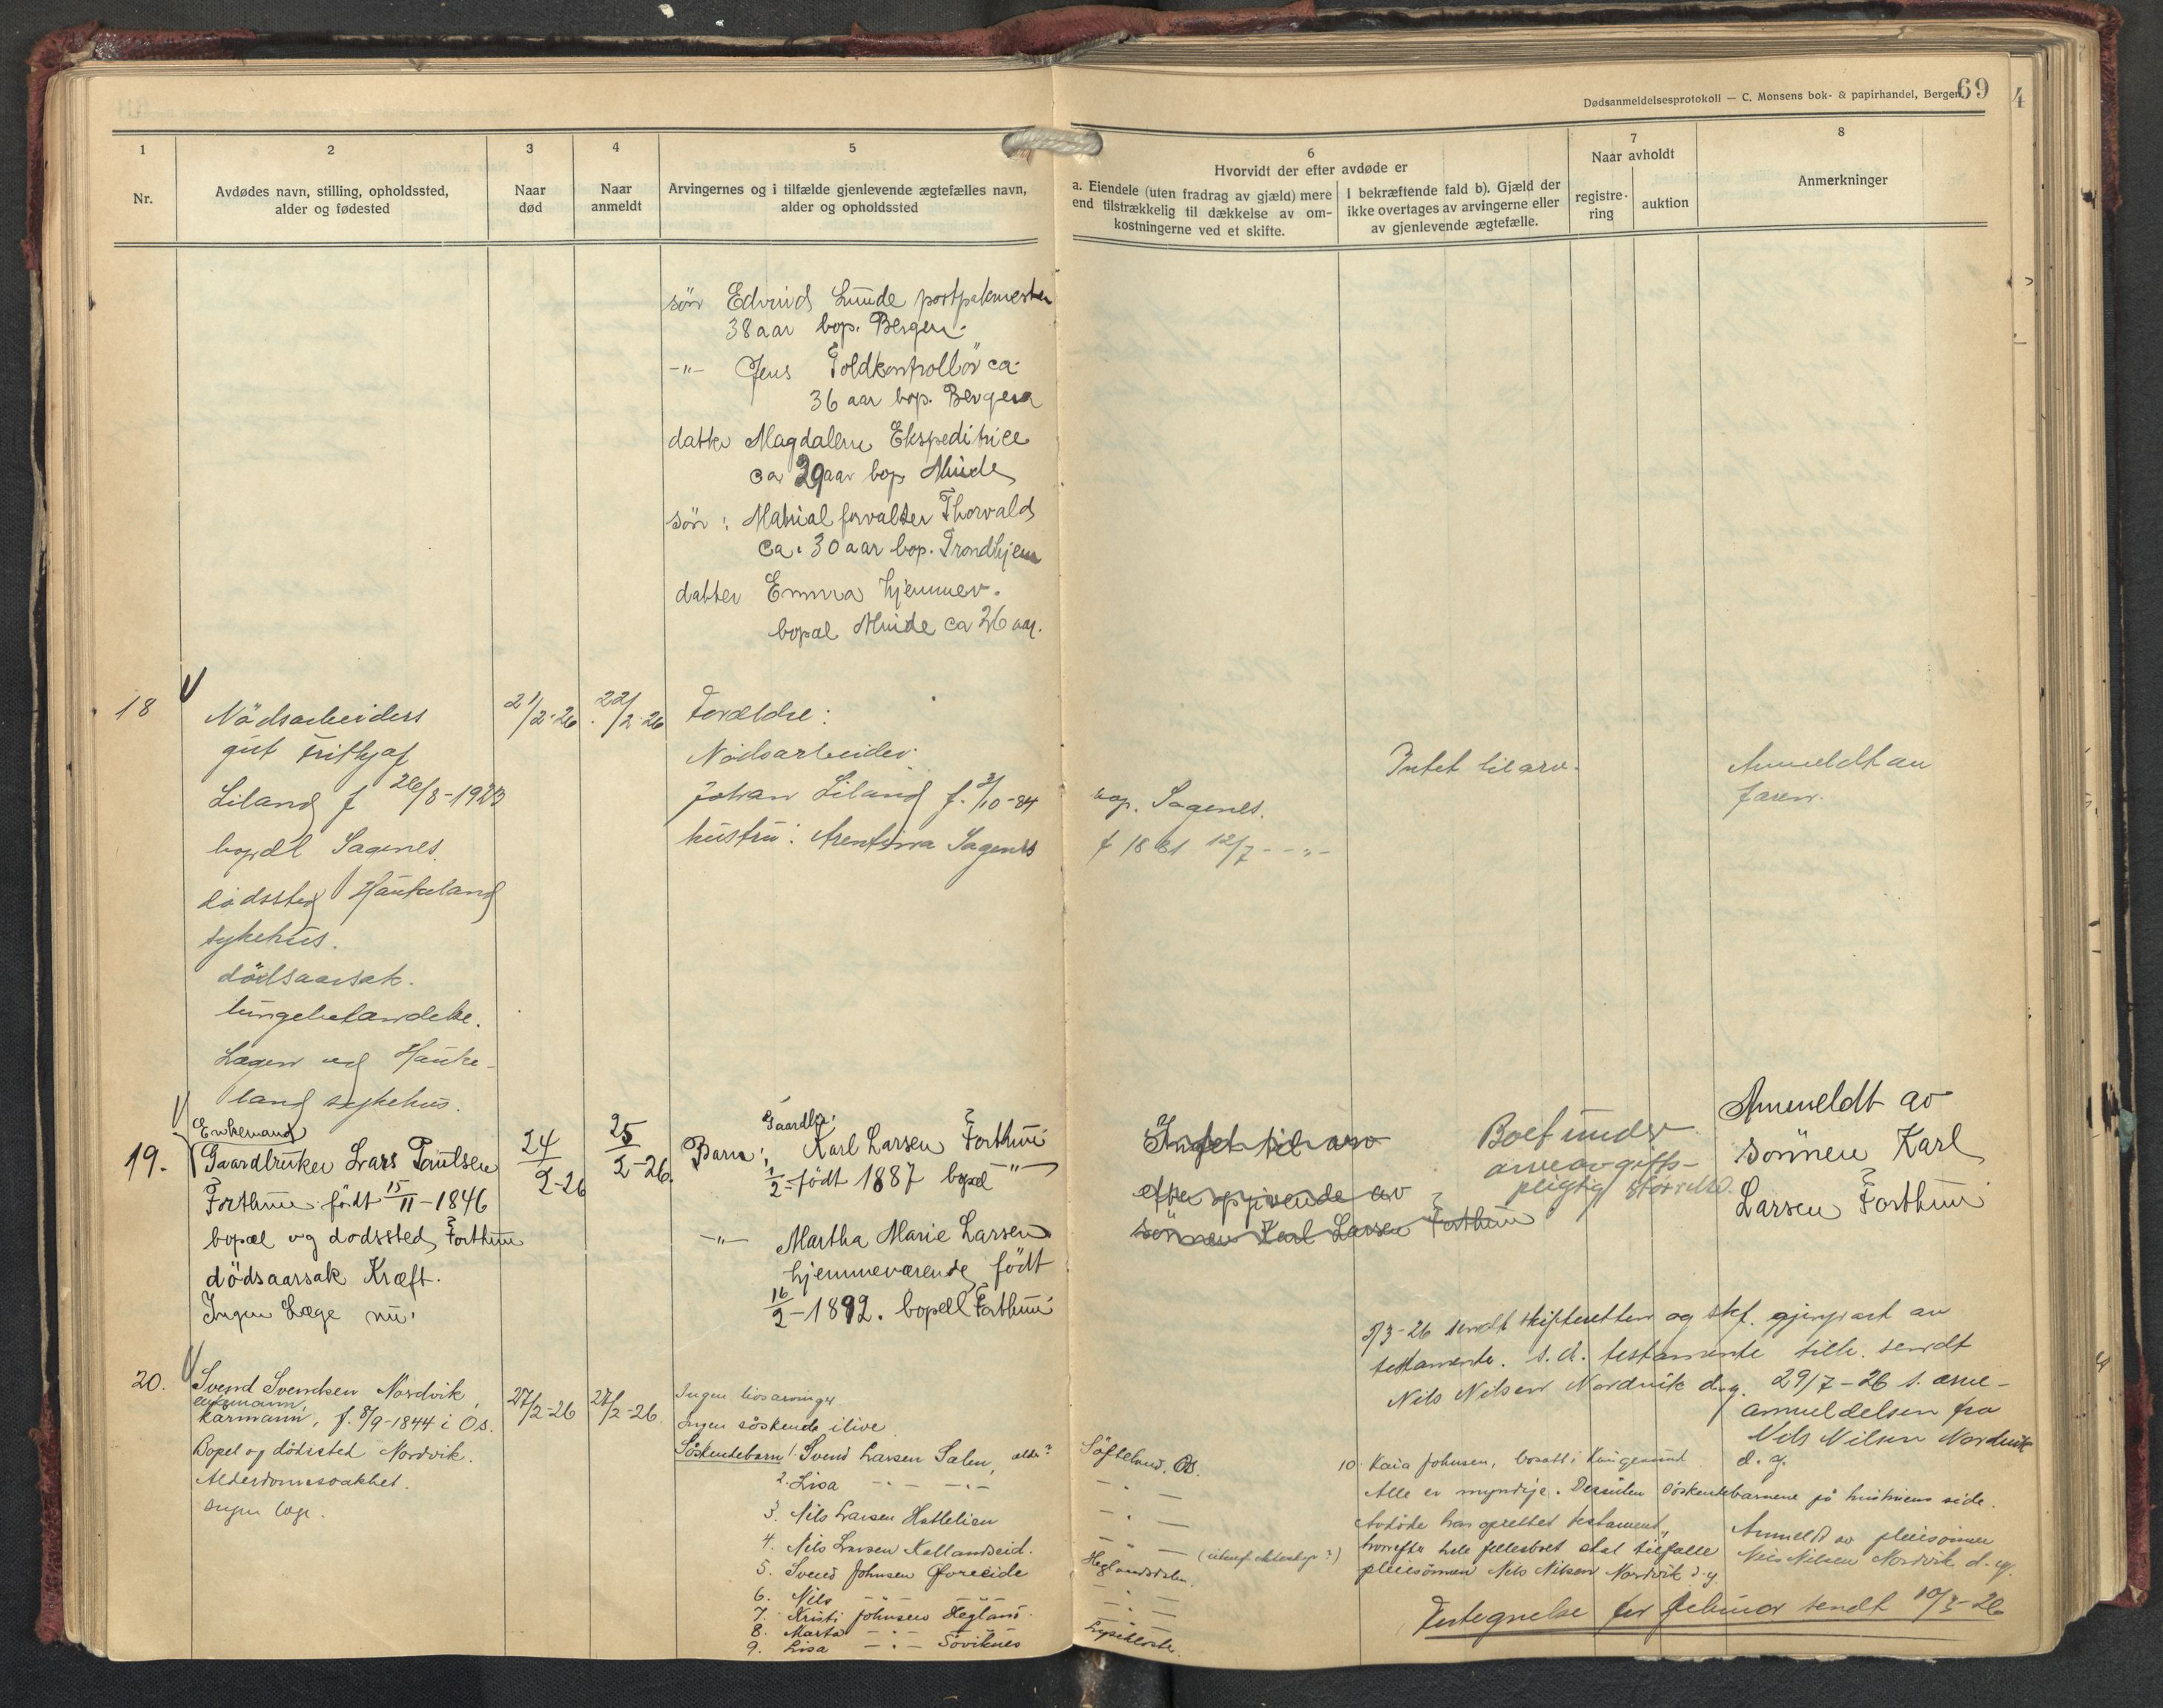 Dødsanmeldelsesprotokoll — C. Monsens bok- & papirhandel, Bergen.
69
4
1
2
3
4
5
6
7
8
Nr.
Avdødes navn, stilling, opholdssted,
alder og fødested
Naar
død
Naar
anmeldt
Arvingernes og i tilfælde gjenlevende ægtefælles navn,
alder og opholdssted
Hvorvidt der efter avdøde er
a. Eiendele (uten fradrag av gjæld) mere
end tilstrækkelig til dækkelse av om-
kostningerne ved et skifte.
I bekræftende fald b). Gjæld der
ikke overtages av arvingerne eller
av gjenlevende ægtefælle.
Naar avholdt
registre-
ring
auktion
Anmerkninger
sön Edvind Lunde postpakmester
38 aar bop. Bergen.
-"- Jens Toldkontrollör ca.
36 aar bop. Bergen
datter Magdalene Ekspeditrice
ca 29 aar bop Minde
sön : Matrialforvalter Thorvald
ca. 30 aar bop. Trondhjem
datter Emma hjemmev.
bopæl Minde ca 26 aar.
18
Nödsarbeiders
gut Frithjof
Liland f 26/8-1923
bopæl Sagenes
dödssted Haukeland
sykehus.
dödsaarsak.
lungebetændelse.
Lægen ved Hauke-
land sykehus.
21/2-26
22/2-26
Forældre:
Nödsarbeider
Johan Liland f. 3/10-84
hustru: Arentina Sagenes
bop. Sagenes.
f 1881 12/7 - - " -
Intet til arv.
Anmeldt av
faren.
19.
Enkemand
Gaardbruker Lars Poulsen
Forthun født 15/11-1846
bopæl og dødssted Forthun
dödsaarsak Kræft.
Ingen Læge nu.
24/2-26
25/2-26.
Gaardbr.
Barn: Karl Larsen Forthun
1/2-født 1887 bopæl -"-
-"- Martha Marie Larsen
hjemmeværende født
16/2-1892. bopæl Forthun
Intet til arv
efter opgivende av
sönnen Karl Larsen Forthun
Boet under
arveavgifts-
pligtig størrelse.
Anmeldt av
sönnen Karl
Larsen Forthun
20.
Svend Svendsen Nordvik,
enkemann,
kårmann, f. 8/9-1844 i Os.
Bopel og dödssted Nordvik.
Alderdomssvakhet.
Ingen læge.
27/2-26
27/2-26.
Ingen livsarvinger
Ingen söskende ilive
Söskendebarn 1. Svend Larsen Salen, alder?
2. Lisa -"- -"-
3. Nils Larsen Hattelien
4. Nils Larsen Kallandseid.
5. Svend Johnsen Øvreeide
6. Nils -"- -"-
7. Kristi Johnsen Hegland.
8. Marta -"- -"-
9. Lisa -"- Søviknes
Söfteland, Os.
Heglandsdalen.
Lysekloster.
5/3-26 sendt skifteretten og skf. gjenpart av
testamente. S. d. testamente tilb. sendt
Nils Nilsen Nordvik d.y. 29/7-26 s. arve-
anmeldelsen fra
Nils Nilsen Nordvik
d. y.
10 Kaia Johnsen, bosatt i Haugesund
Alle er myndige. Desuten söskendebarnene på hustruens side.
Avdöde har oprettet testament,
hvorefter hele fellesboet skal tilfalle
pleiesönnen Nils Nilsen Nordvik d.y.
Anmeldt av pleiesönnen
Nils Nilsen Nordvik d. y.
Fortegnelse for februar sendt 10/3-26